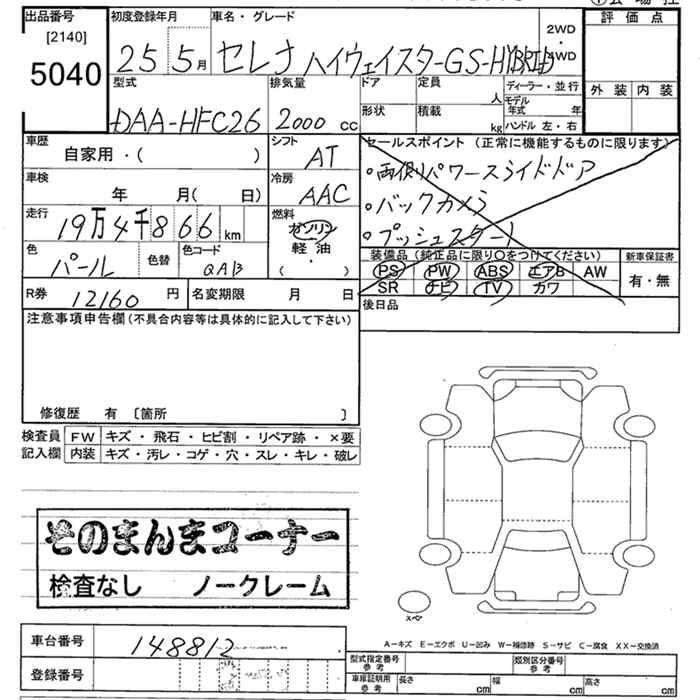 出品番号 初度登録年月 車名・グレード 評価点
[2140]
5040 25 5月 セレナ ハイウェイスター GS-HYBRID 2WD ・ 4WD
型式 排気量 ドア 定員 人 ディーラー・並行 外装 内装
DAA-HFC26 2000 cc 形状 積載 kg モデル年式 年
ハンドル 左・右
車歴 シフト セールスポイント (正常に機能するものに限ります)
自家用・( ) AT ・両側パワースライドドア
車検 冷房 ・バックカメラ
年 月( 日) AAC ・プッシュスタート
走行 燃料
19万4千866 km ガソリン
軽油
( ・ )
色 色替 色コード 装備品(純正品に限り○をつけてください) 新車保証書
パール QAB PS PW ABS エアB AW 有・無
R券 12160 円 名変期限 月 日 SR ナビ TV カワ
注意事項申告欄(不具合内容等は具体的に記入して下さい) 後日品
修復歴 有 〔箇所 〕
検査員 FW キズ・飛石・ヒビ割・リペア跡・×要
記入欄 内装 キズ・汚レ・コゲ・穴・スレ・キレ・破レ
そのまんまコーナー
検査なし ノークレーム
スペア
A-キズ E-エクボ U-凹み W-補修跡 S-サビ C-腐食 XX-交換済
車台番号 148812
型式指定番号 参考 類別区分番号 参考
登録番号 車庫証明用 参考 長さ cm 幅 cm 高さ cm